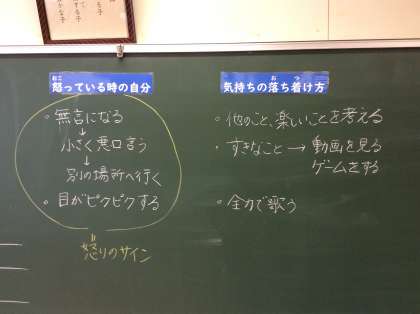 おこ
怒っている時の自分
・無言になる
↓
小さく悪口言う
↓
別の場所へ行く
・目がピクピクする
怒りのサイン
お つ
気持ちの落ち着け方
・他のこと、楽しいことを考える
・すきなこと → 動画を見る
ゲームをする
・全力で歌う